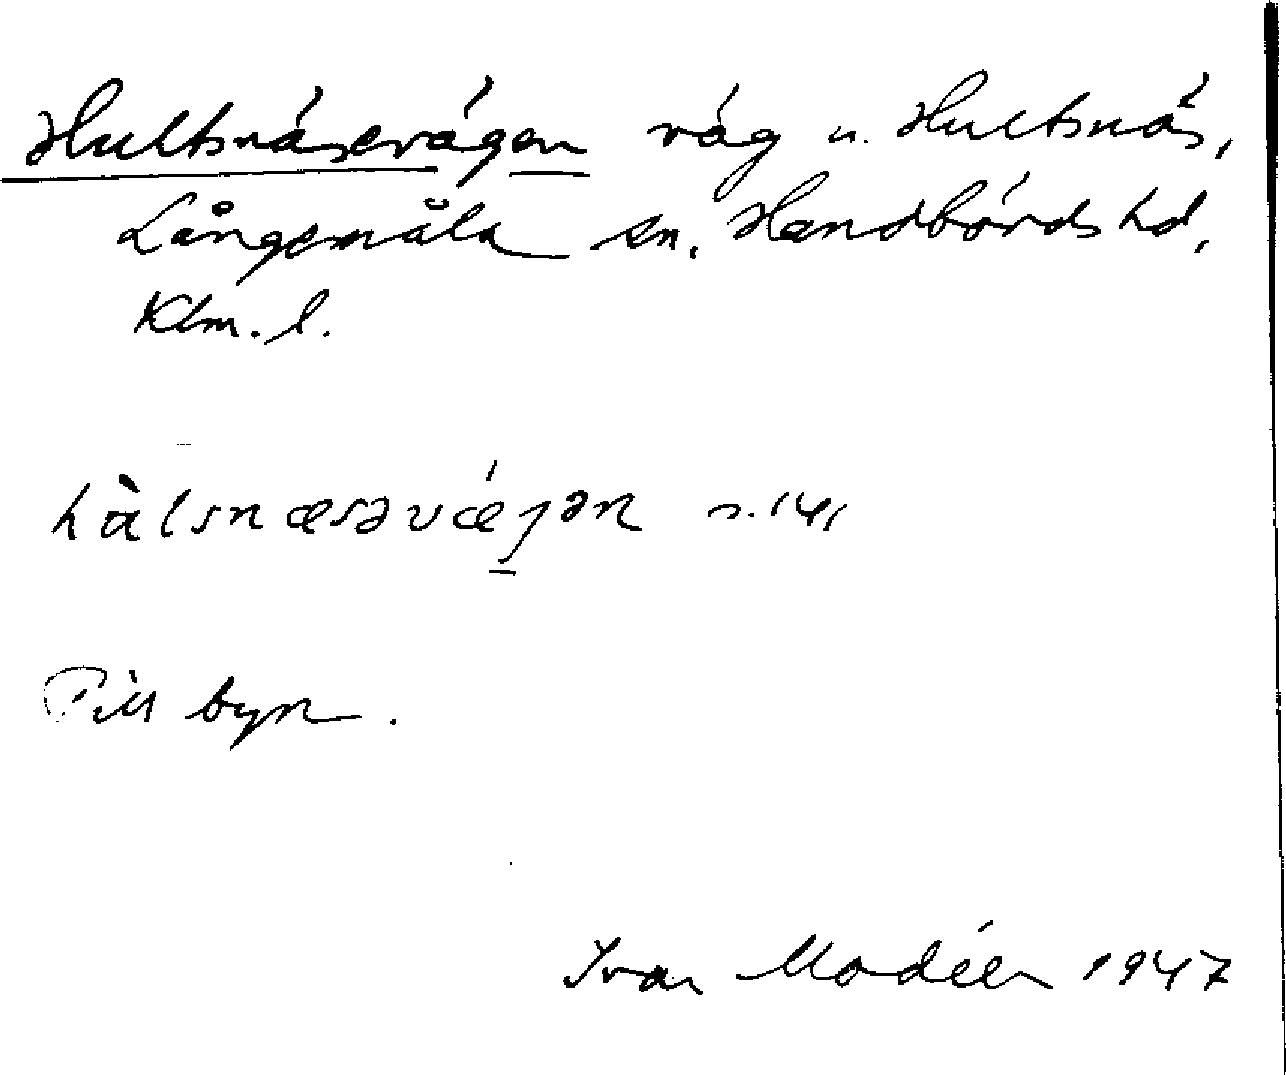 Hultsnäsevägen väg u. Hultsnäs,
Långemåla sn, Handbörds hd,
Klm. l.
Till byn.
Ivar Modéer 1947